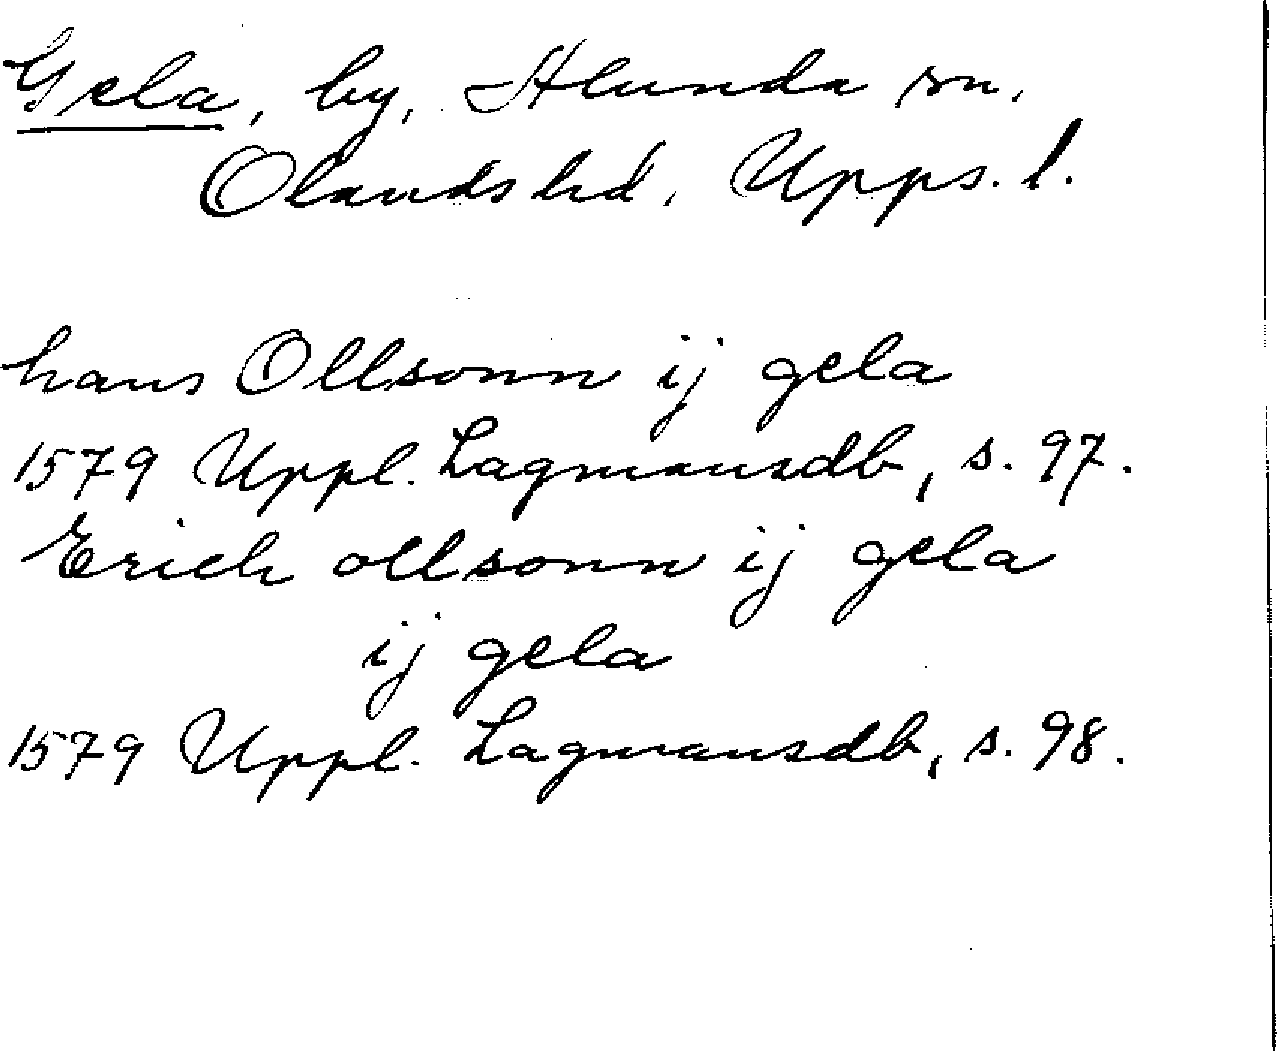 Gela, by, Alunda sn,
Olands hd, Upps. l.
hans Ollsonn ij gela
1579 Uppl. Lagmansdb, s. 97.
Erich ollsonn ij gela
ij gela
1579 Uppl. Lagmansdb, s. 98.